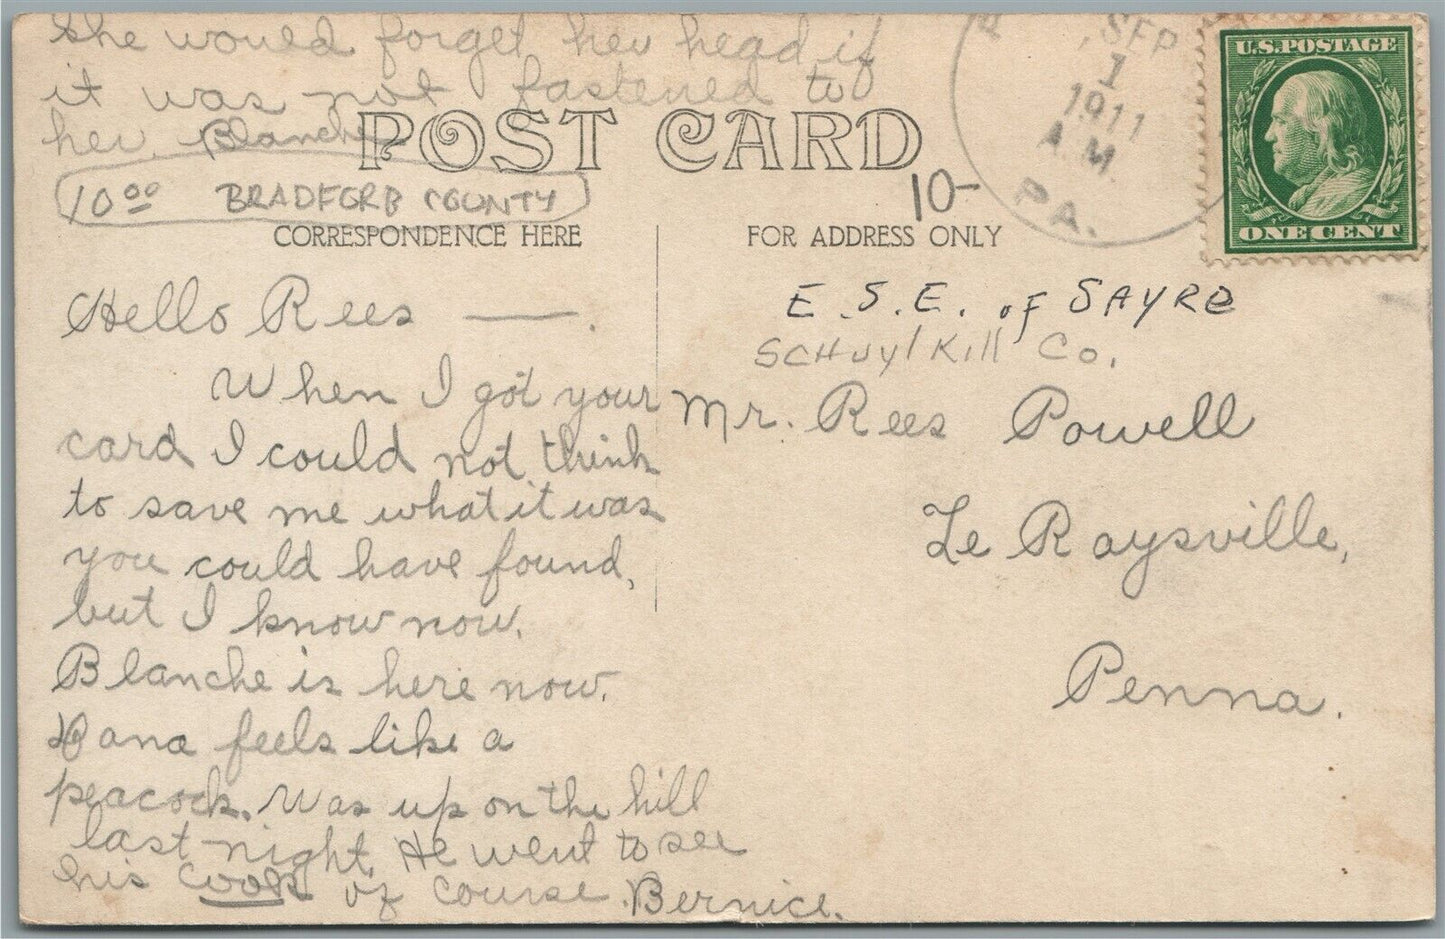 she would forget her head if
it was not fastened to
her. Blanche
POST CARD
10 00 BRADFORD COUNTY
10-
CORRESPONDENCE HERE
FOR ADDRESS ONLY
SEP
1
1911
A.M.
PA.
U.S. POSTAGE
ONE CENT
Hello Rees —.
When I got your
card I could not think
to save me what it was
you could have found,
but I know now.
Blanche is here now.
Dana feels like a
peacock. Was up on the hill
last night. He went to see
his cook of course. Bernice.
E.S.E. of SAYRE
SCHUYlKill Co.
Mr. Rees Powell
Le Raysville,
Penna.